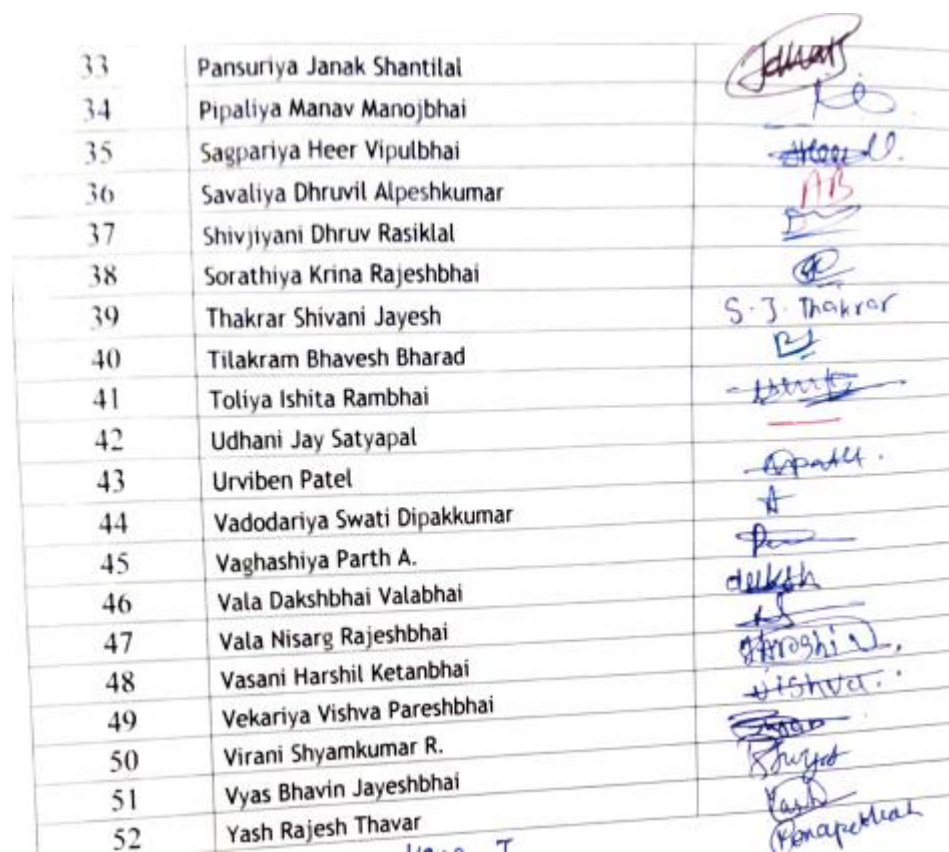 33 Pansuriya Janak Shantilal
34 Pipaliya Manav Manojbhai
35 Sagpariya Heer Vipulbhai
36 Savaliya Dhruvil Alpeshkumar AB
37 Shivjiyani Dhruv Rasiklal
38 Sorathiya Krina Rajeshbhai
39 Thakrar Shivani Jayesh S. J. Thakrar
40 Tilakram Bhavesh Bharad
41 Toliya Ishita Rambhai
42 Udhani Jay Satyapal
43 Urviben Patel
44 Vadodariya Swati Dipakkumar
45 Vaghashiya Parth A.
46 Vala Dakshbhai Valabhai
47 Vala Nisarg Rajeshbhai
48 Vasani Harshil Ketanbhai
49 Vekariya Vishva Pareshbhai Vishva
50 Virani Shyamkumar R.
51 Vyas Bhavin Jayeshbhai
52 Yash Rajesh Thavar